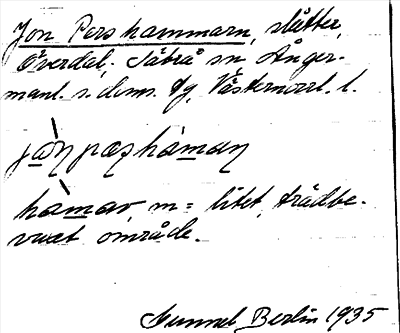 Jon Pers hammarn, slåtter,
Överdal, Säbrå sn, Ånger-
manl. s. doms. lg, Västernorrl. l.
hàmar, m = litet, trädbe-
vuxet område.
Gunnel Berlin 1935